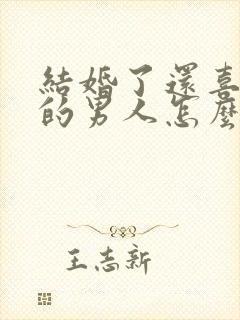 結婚了還喜
的男人怎麼
王志新